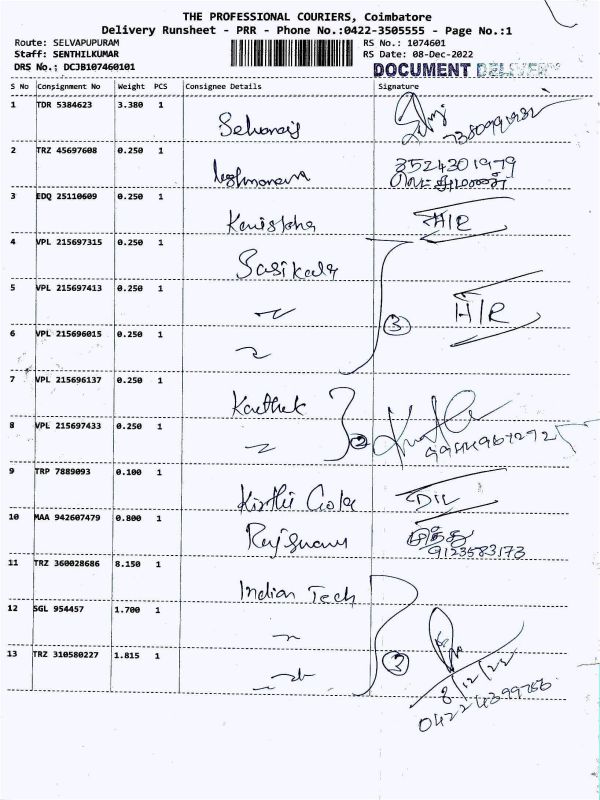 THE PROFESSIONAL COURIERS, Coimbatore
Delivery Runsheet - PRR - Phone No.:0422-3505555 - Page No.:1
Route: SELVAPUPURAM RS No.: 1074601
Staff: SENTHILKUMAR RS Date: 08-Dec-2022
DRS No.: DCJB107460101 DOCUMENT DELIVERY
S No Consignment No Weight PCS Consignee Details Signature
1 TDR 5384623 3.380 1
2 TRZ 45697608 0.250 1 8524301979
3 EDQ 25110609 0.250 1 Kanishka H/R
4 VPL 215697315 0.250 1 Sasikala
5 VPL 215697413 0.250 1 3 H/R
6 VPL 215696015 0.250 1
7 VPL 215696137 0.250 1 Karthek
8 VPL 215697433 0.250 1 2
9 TRP 7889093 0.100 1 D/L
10 MAA 942607479 0.800 1 9123583173
11 TRZ 360028686 8.150 1 Indian Tech
12 SGL 954457 1.700 1
13 TRZ 310580227 1.815 1 3 8/12/22